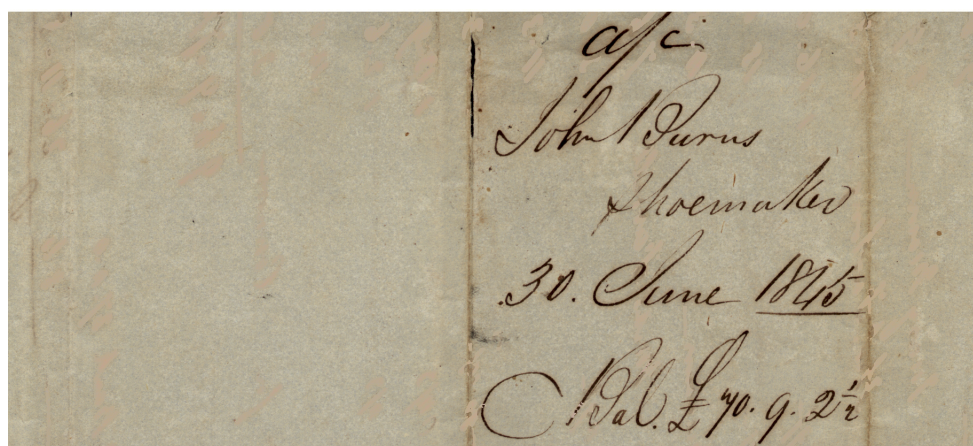 a/c
John Burns
Shoemaker
30. June 1845
Bal. £70. 9. 2½